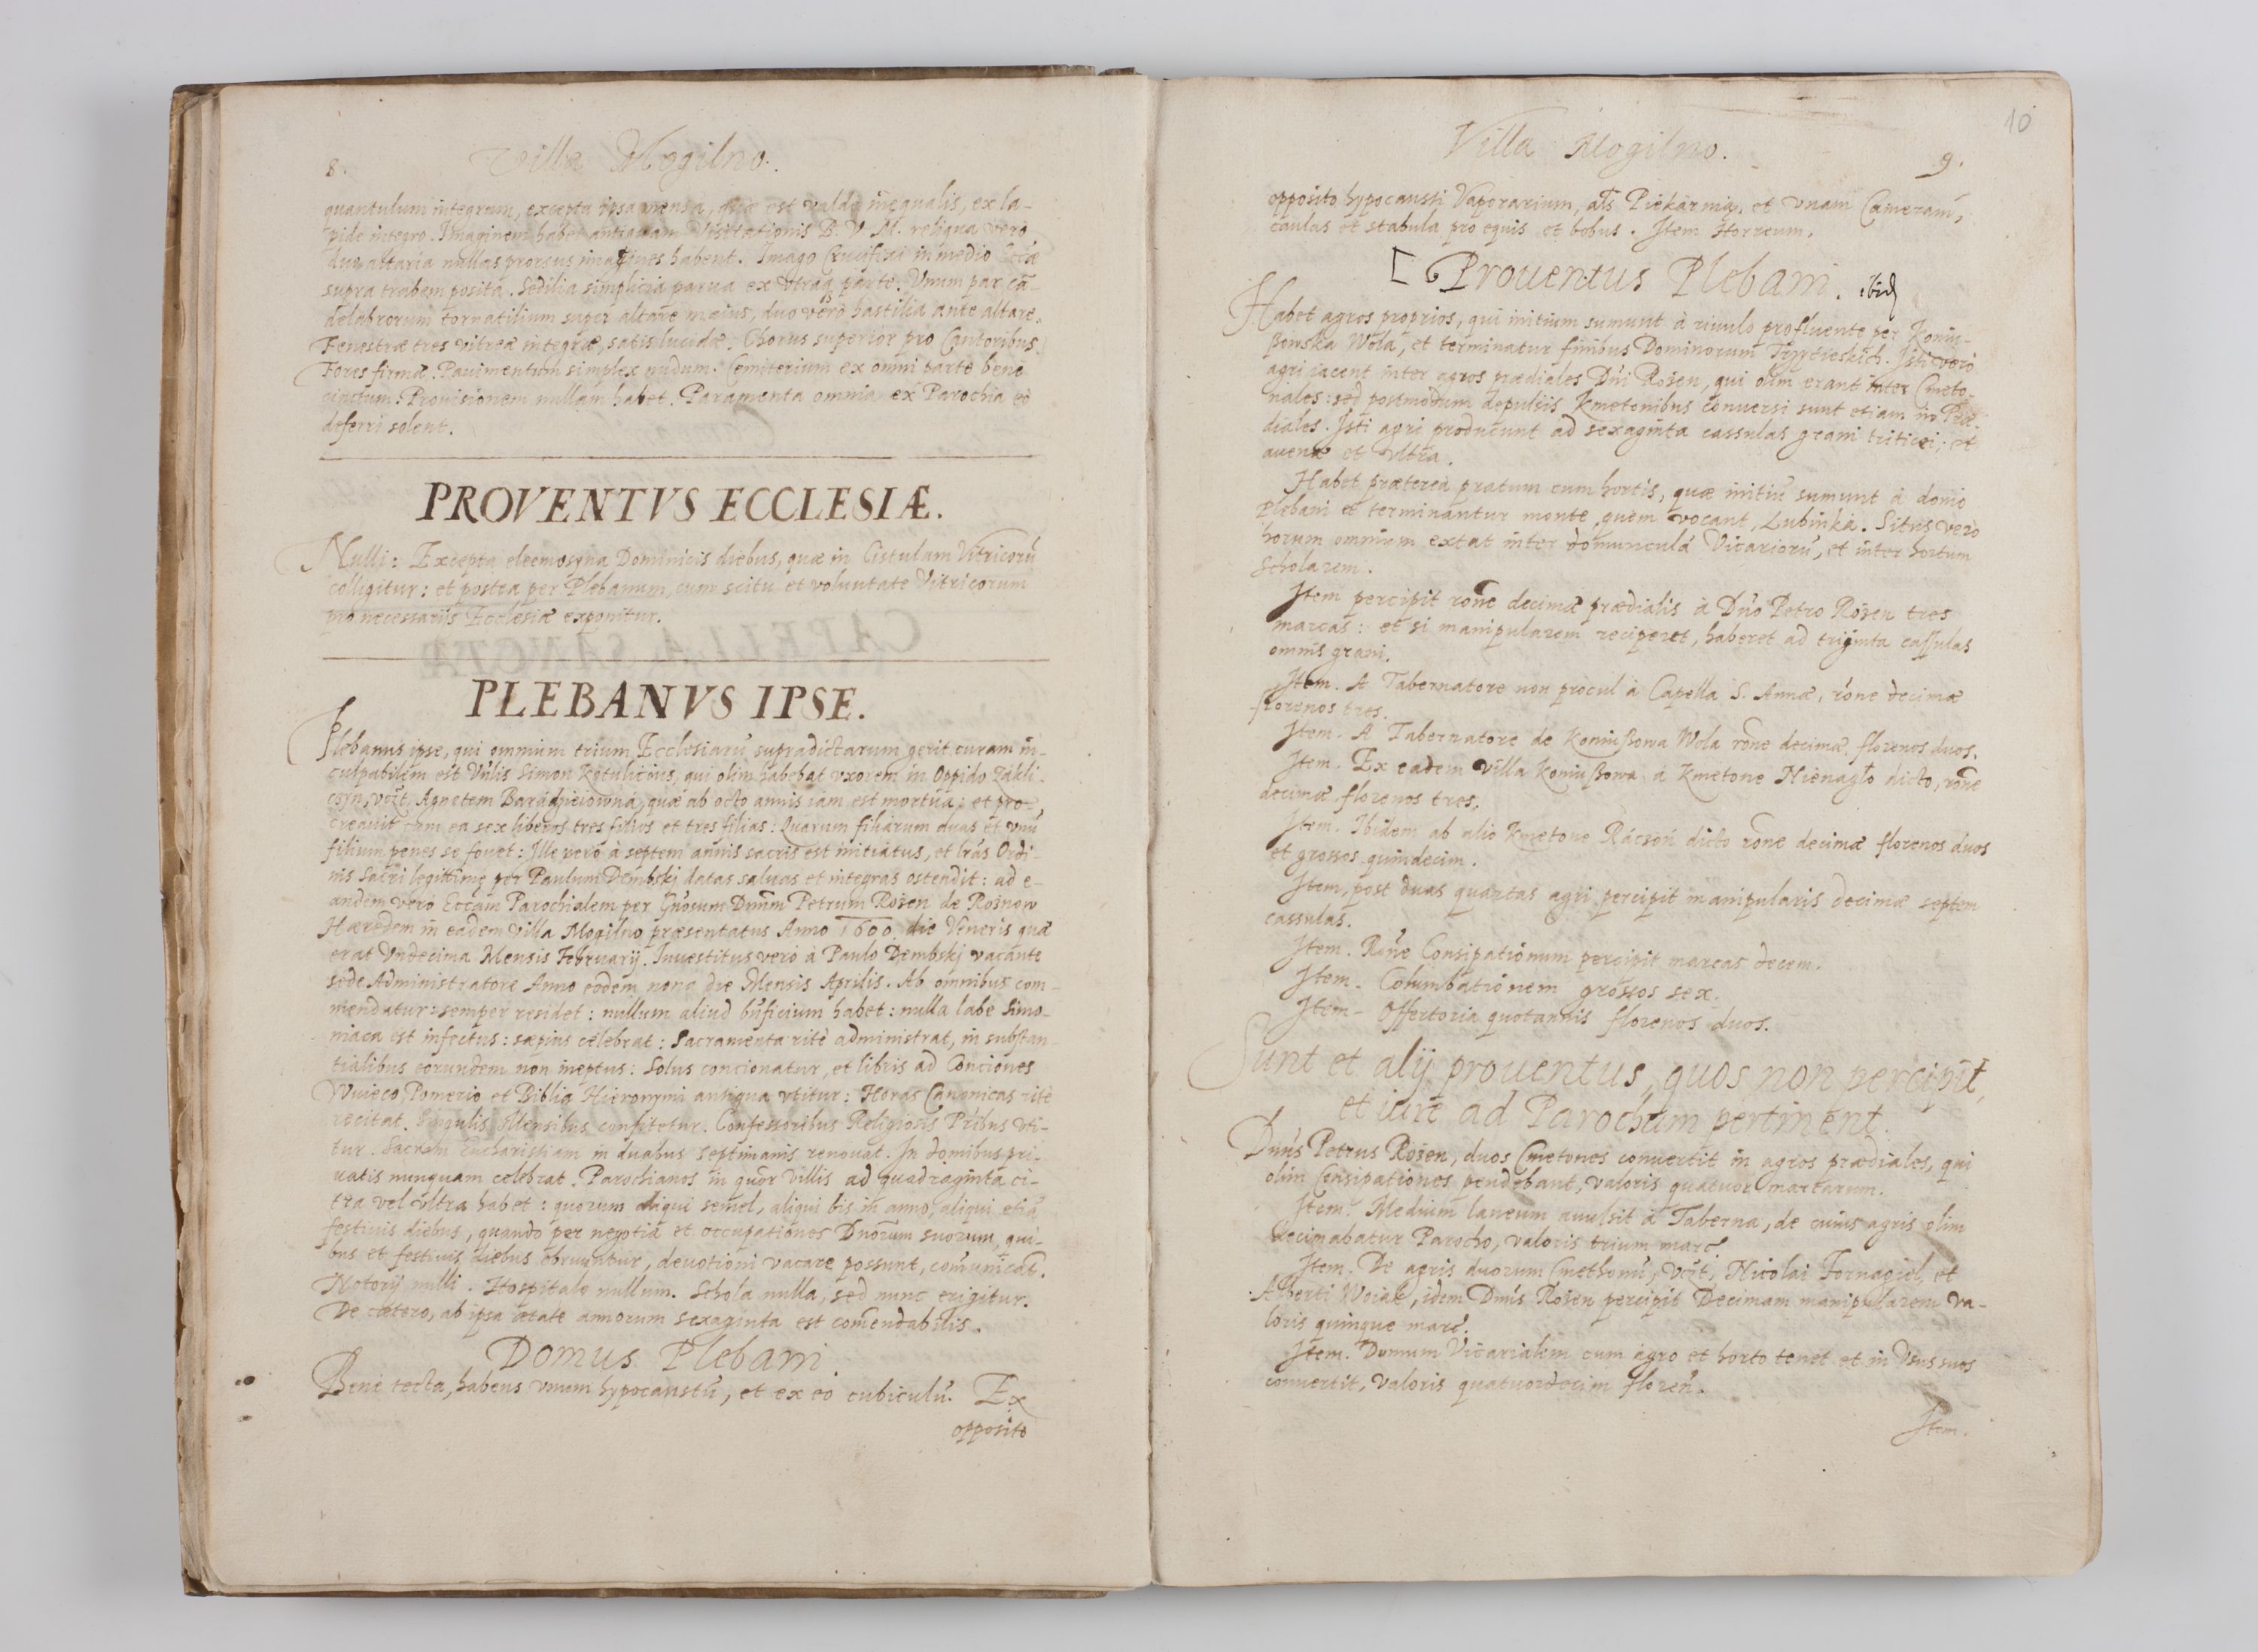 8.
Villa Mogilno.
quantulum integrum, excepta ipsa mensa, quæ est valde inequalis, ex la-
pide integro. Imaginem habet antiquam Visitationis B. V. M. reliqua vero
duo altaria nullas prorsus imagines habent. Imago Crucifixi in medio
supra trabem posita. Sedilia simplicia parua ex utraq parte. Unum par cā-
delabrorum tornatilium super altare maius, duo vero hastilia ante altare.
Fenestræ tres vitreæ integræ, satis lucidæ. Chorus superior pro Cantoribus.
Fores firmæ. Pauimentum simplex nudum. Cemiterium ex omni parte bene
cinctum. Prouisionem nullam habet. Paramenta omnia ex Parochia eo
deferri solent.
PROVENTVS ECCLESIÆ.
Nulli: Excepta eleemosyna Dominicis diebus, quæ in Cistulam Vitricorū
colligitur: et postea per Plebanum, cum scitu et voluntate Vitricorum
pro necessarijs Ecclesiæ exponitur.
PLEBANVS IPSE.
Plebanus ipse, qui omnium trium Ecclesiarū supradictarum gerit curam in-
culpabilem est Vnlis Simon Kotulicius, qui olim habebat vxorem in Oppido Zakli-
czyn, vczt. Agnetem quæ ab octo annis iam est mortua: et pro-
creauit cum ea sex liberos tres filios et tres filias: Quarum filiarum duas et vnū
filium penes se fouet: Ille vero à septem annis sacris est initiatus, et lrās Ordi-
nis Sacri legittime per Paulum Dembskj datas saluas et integras ostendit: ad e-
andem vero Eccām Parochialem per Gnosum Dnnm Petrum Rożen de Rożnow
Hæredem in eadem villa Mogilno præsentatus Anno 1600 die Veneris quæ
erat vndecima Mensis February. Inuestitus vero à Paulo Dembskj vacante
sede Administratore Anno eodem nona die Mensis Aprilis. Ab omnibus com-
mendatur: semper residet: nullum aliud bnficium habet: nulla labe simo-
niaca est infectus: sæpius celebrat: Sacramenta ritè administrat, in substan-
tialibus eorundem non ineptus: Solus concionatur, et libris ad Conciones
Wuieco, Pomerio et Biblia Hieronymi antiqua vtitur: Horas Canonicas ritè
recitat. Singulis Mensibus confitetur. Confessoribus Religiosis Pribus vti-
tur. Sacram Eucharistiam in duabus septimanis renouat. In domibus pri-
uatis nunquam celebrat. Parochianos in quor villis ad quadraginta ci-
tra vel vltra habet: quorum aliqui semel, aliqui bis in anno, aliqui etiā
festiuis diebus, quando per negotia et occupationes Dnorum suorum, qui-
bus et festiuis diebus obruuntur, deuotioni vacare possunt, comunicāt.
Notorij nulli. Hospitale nullum. Schola nulla, sed nunc erigitur.
De cætero, ab ipsa ætate annorum sexaginta est comendabilis.
Domus Plebani.
Benè tecta, habens vnum hypocaustū, et ex eo cubiculū. Ex
opposito
10
Villa Mogilno.
9.
opposito hypocausti Vaporarium, als Piekarnią, et vnam Cameram,
caulas et stabula pro equis et bobus. Item Horreum.
Prouentus Plebani. ibid
Habet agros proprios, qui initium sumunt à riuulo profluente per Koniu-
ßowska Wola, et terminatur finibus Dominorum. Isti vero
agri iacent inter agros prædiales Dni Rożen, qui olim erant inter Cmeto-
nales: sed postmodum depulsis Kmetonibus conuersi sunt etiam in Præ-
diales. Isti agri producunt ad sexaginta cassulas grani triticei, et
auenæ et vltra.
Habet præterea pratum cum hortis, quæ initiū sumunt à domo
Plebani et terminantur monte, quem vocant, Lubinka. Situs vero
horum omnium extat inter domunculā Vicariorū, et inter hortum
Scholarem.
Item percipit rone decimæ prædialis à Dno Petro Rożen tres
marcas: et si manipularem reciperet, haberet ad triginta cassulas
omnis grani.
Item. A Tabernatore non procul à Capella S. Annæ, rone decimæ
florenos tres.
Item. A Tabernatore de Koniußowa Wola rone decimæ florenos duos.
Item. Ex eadem villa Koniußowa à Kmetone Nienagło dicto, rone
decimæ florenos tres.
Item. Ibidem ab alio Kmetone Racson dicto rone decimæ florenos duos
et grossos quindecim.
Item, post duas quartas agri percipit manipularis decimæ septem
cassulas.
Item. Rone Consipationum percipit marcas decem.
Item. Columbationem grossos sex.
Item - Offertoria quotannis florenos duos.
Sunt et alij prouentus, quos non percipit,
et iure ad Parochum pertinent.
Dnus Petrus Rożen, duos Cmetones conuertit in agros prædiales, qui
olim Consipationes pendebant, valoris quatuor marcarum.
Item. Medium laneum auulsit à Taberna, de cuius agris olim
decimabatur Parocho, valoris trium marc.
Item. De agris duorum Cmethonū, vczt, Nicolai Fornagiel, et
Alberti Woiak, idem Dnus Rożen percipit Decimam manipularem va-
loris quinque marc.
Item. Domum Vicarialem cum agro et horto tenet et in Vsus suos
conuertit, valoris quatuordecim floren.
Item.